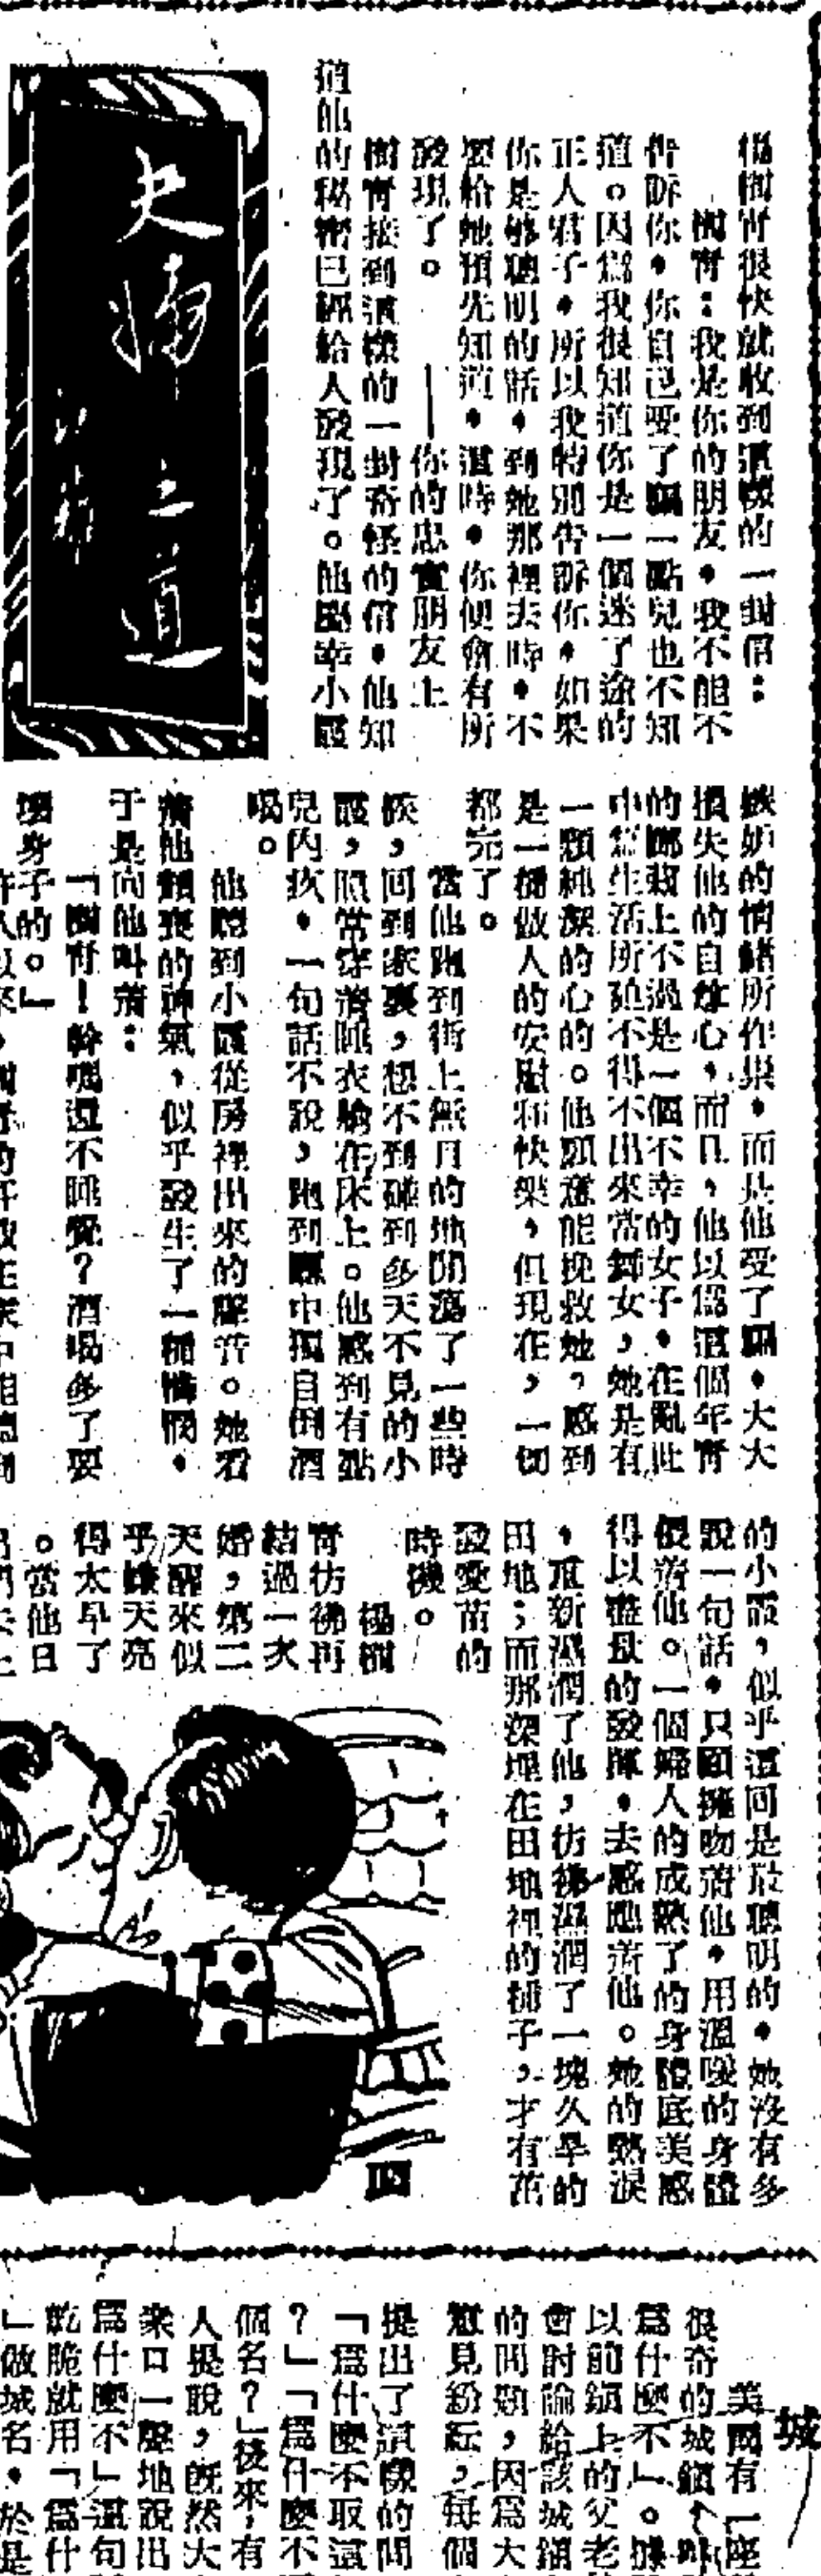 楊樹甯很快就收到這樣的一封信：
樹甯：我是你的朋友。我不能不
告訴你。你自己受了騙一點兒也不知
道。因爲我很知道你是一個迷了途的
正人君子。所以我特別告訴你。如果
你是够聰明的話。到她那裡去時。不
要給她預先知道。這時。你便會有所
發現了。——你的忠實朋友上
樹甯接到這樣的一封奇怪的信。他知
道他的秘密已經給人發現了。他
夫婦之道
嫉妒的情緒所作祟。而是他受了騙。大大
損失他的自尊心，而且，他以爲這個年青
的上不過是一個不幸的女子。在亂世
中爲生活所迫不得不出來當舞女，她是有
一顆純潔的心的。他願意能挽救她，感到
是一種做人的安慰和快樂，但現在，一切
都完了。
當他跑到街上無目的地閒蕩了一些時
候，回到家裏，想不到碰到多天不見的小
霞，照常穿着睡衣躺在床上。他感到有點
兒內疚。一句話不說，跑到廳中獨自倒酒
喝。
他聽到小霞從房裡出來的聲音。她看
着他頹喪的神氣，似乎發生了一種憐憫。
于是向他叫着：
「樹甯！幹嗎還不睡覺？酒喝多了要
壞身子的。」
的小霞，似乎這回是最聰明的。她沒有多
說一句話。只顧擁吻着他。用溫暖的身體
偎着他。一個婦人的成熟了的身體底美感
得以盡量的發揮。去感動着他。她的熱淚
。重新濕潤了他，彷彿濕潤了一塊久旱的
田地；而那深埋在田地裡的種子，才有茁
發愛苗的
時機。
楊樹
甯彷彿再
結過一次
婚，第二
天醒來似
乎嫌天亮
得太早了
。當他日
四
城
美國有一座
很奇的城鎮
爲什麼不」。
以前鎮上的父老
會討論給該城鎮
的問題，因爲大
意見紛紜，每個
提出了這樣的問
「爲什麼不取這
？」「爲什麼不
個名？」後來，有
人提說，既然大
衆口一聲地說出
爲什麼不」這句
乾脆就用「爲什
」做城名。於是